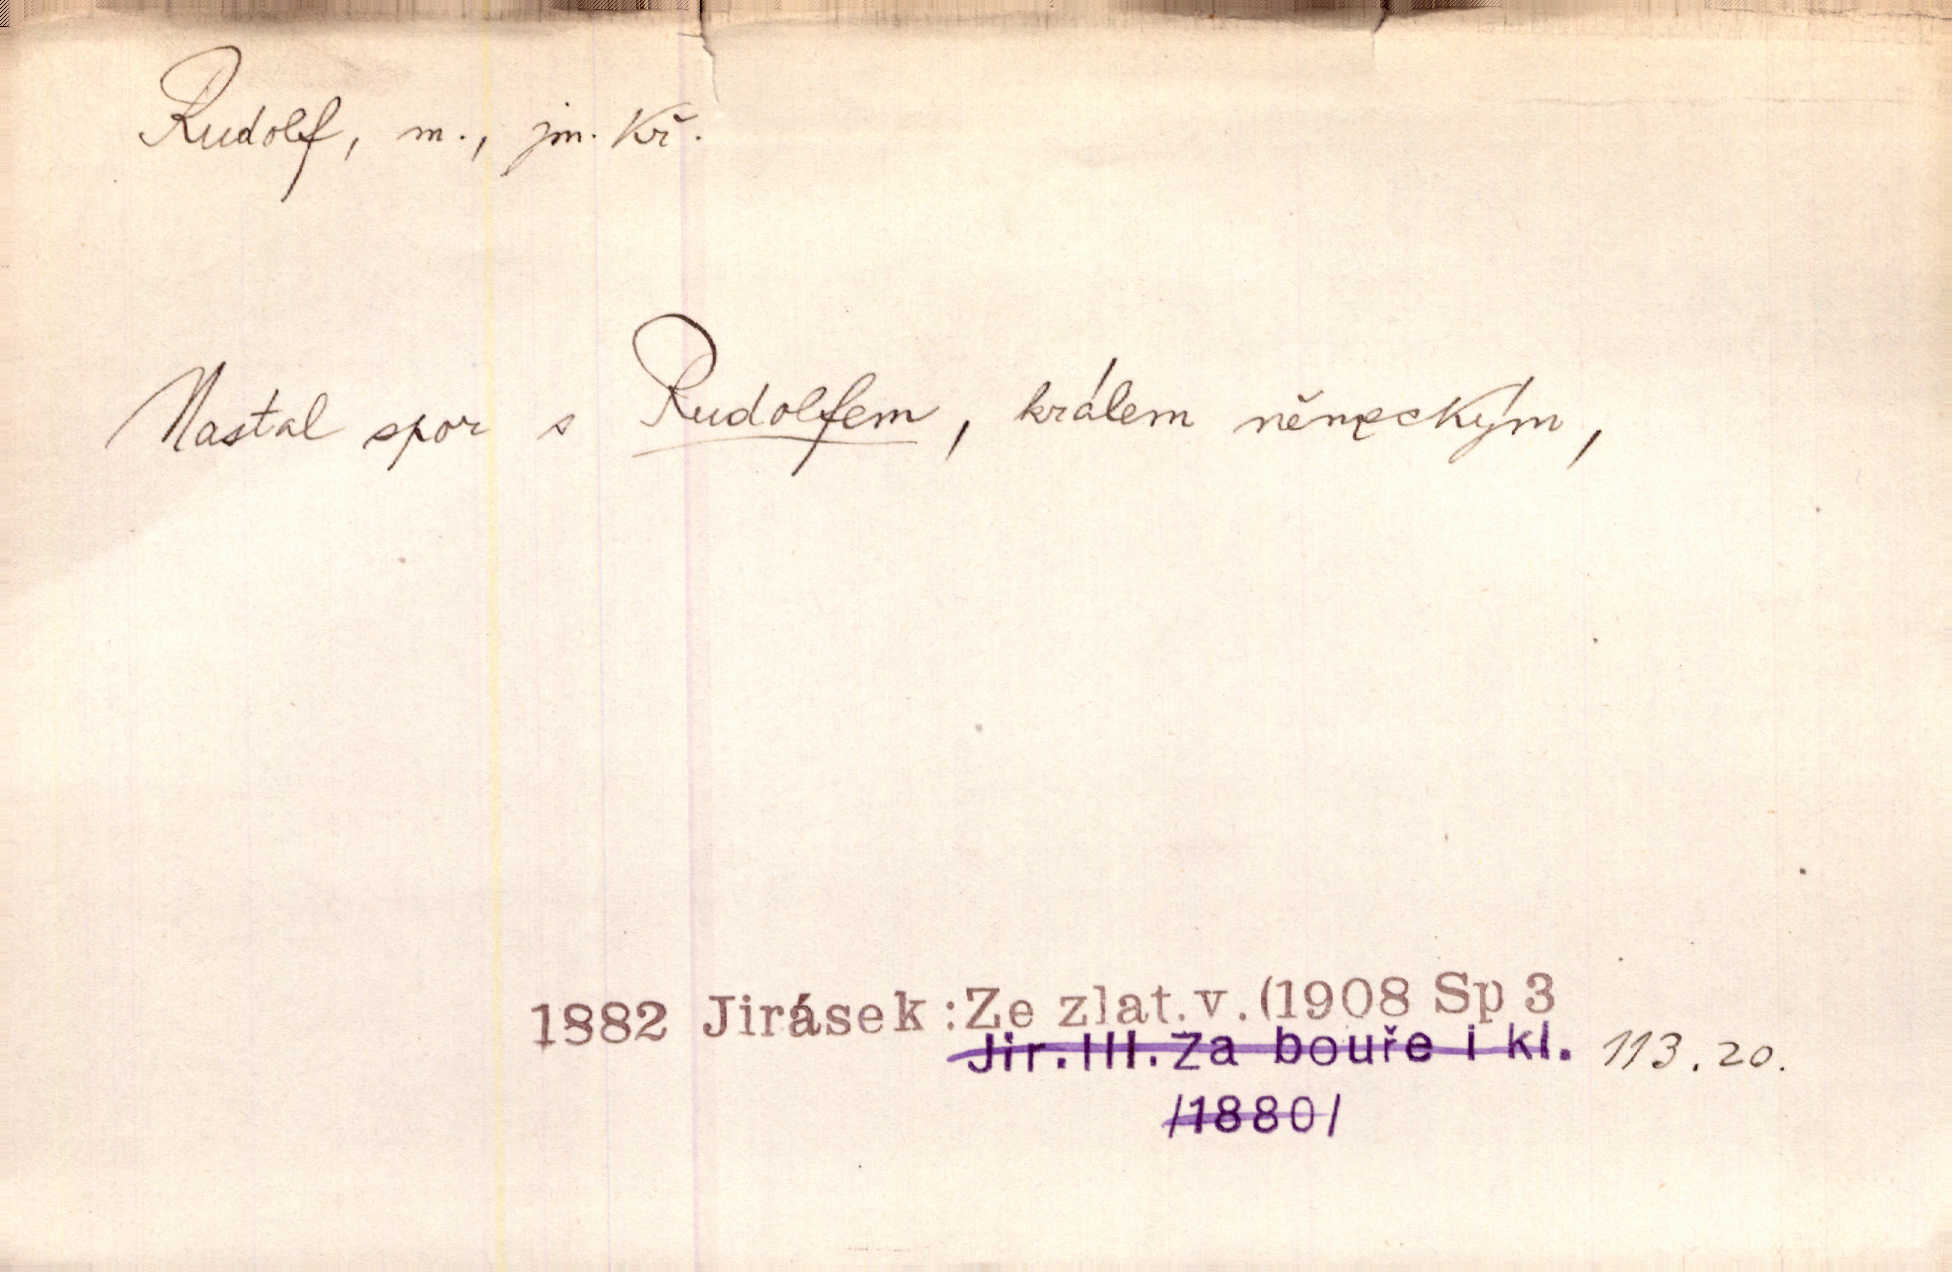 Rudolf, m., jm. kř.
Nastal spor s Rudolfem, králem německým,
1882 Jirásek: Ze zlat. v. (1908 Sp 3
Jir. III. Za bouře i kl. 113. 20.
/1880/